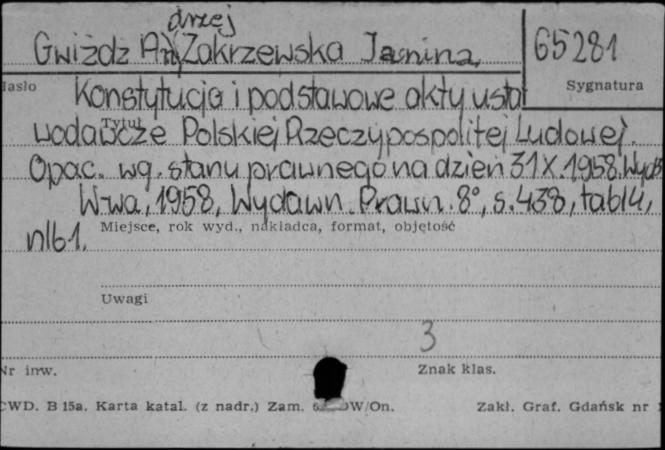 drzej
Gwiżdż An, Zakrzewska Janina. 65281
Hasło Sygnatura
Konstytucja i podstawowe akty usta
Tytuł
wodawcze Polskiej Rzeczypospolitej Ludowej.
Opac. wg. stanu prawnego na dzień 31 X. 1958.
W-wa, 1958, Wydawn. Prawn. 8°, s. 438, tabl 4,
nlb 1.
Miejsce, rok wyd., nakładca, format, objętość
Uwagi
3
Nr inw. Znak klas.
CWD. B 15a. Karta katal. (z nadr.) Zam. DW/On. Zakł. Graf. Gdańsk nr